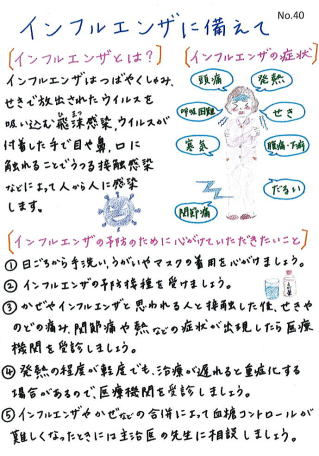 No.40
インフルエンザに備えて
[インフルエンザとは?]
インフルエンザはつばやくしゃみ、
せきで放出されたウイルスを
吸い込む飛沫感染、ウイルスが
ひまつ
付着した手で目や鼻、口に
触れることでうつる接触感染
などによって人から人に感染
します。
[インフルエンザの症状]
頭痛
発熱
呼吸困難
せき
寒気
腹痛・下痢
だるい
関節痛
[インフルエンザの予防のために心がけていただきたいこと]
① 日ごろから手洗い、うがいやマスクの着用を心がけましょう。
② インフルエンザの予防接種を受けましょう。
③ かぜやインフルエンザと思われる人と接触した後、せきや
のどの痛み、関節痛や熱などの症状が出現したら医療
機関を受診しましょう。
④ 発熱の程度が軽度でも、治療が遅れると重症化する
場合があるので、医療機関を受診しましょう。
⑤ インフルエンザやかぜなどの合併によって血糖コントロールが
難しくなったときには主治医の先生に相談しましょう。